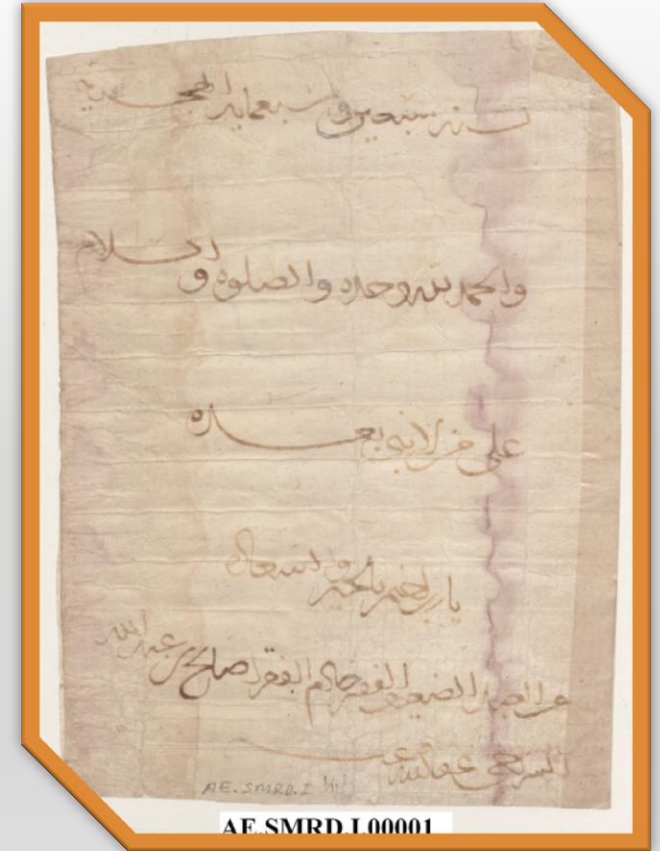 سنة سبعين و سبعماية الهجرية
والحمد لله وحده والصلوة و السلام
على من لا نبي بعده
يا رب اختم بالخير و السعادة
العبد الضعيف الفقير خادم الفقرا صالح بن عبد الله
عفا الله عنه
AE.SMRD.I 1/1
AE.SMRD.I.00001